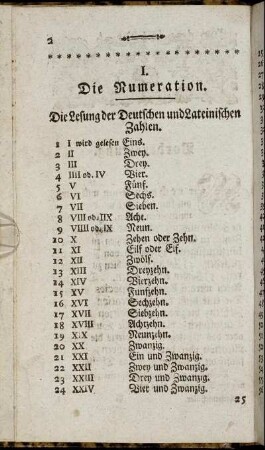 2
I.
Die Numeration.
Die Lesung der Deutschen und Lateinischen
Zahlen.
1 I wird gelesen Eins.
2 II Zwey.
3 III Drey.
4 IIII od. IV Vier.
5 V Fünf.
6 VI Sechs.
7 VII Sieben.
8 VIII od. IIX Acht.
9 VIIII od. IX Neun.
10 X Zehen oder Zehn.
11 XI Eilf oder Elf.
12 XII Zwölf.
13 XIII Dreyzehn.
14 XIV Vierzehn.
15 XV Funfzehn.
16 XVI Sechzehn.
17 XVII Siebzehn.
18 XVIII Achtzehn.
19 XIX Neunzehn.
20 XX Zwanzig.
21 XXI Ein und Zwanzig.
22 XXII Zwey und Zwanzig.
23 XXIII Drey und Zwanzig.
24 XXIV Vier und Zwanzig.
25